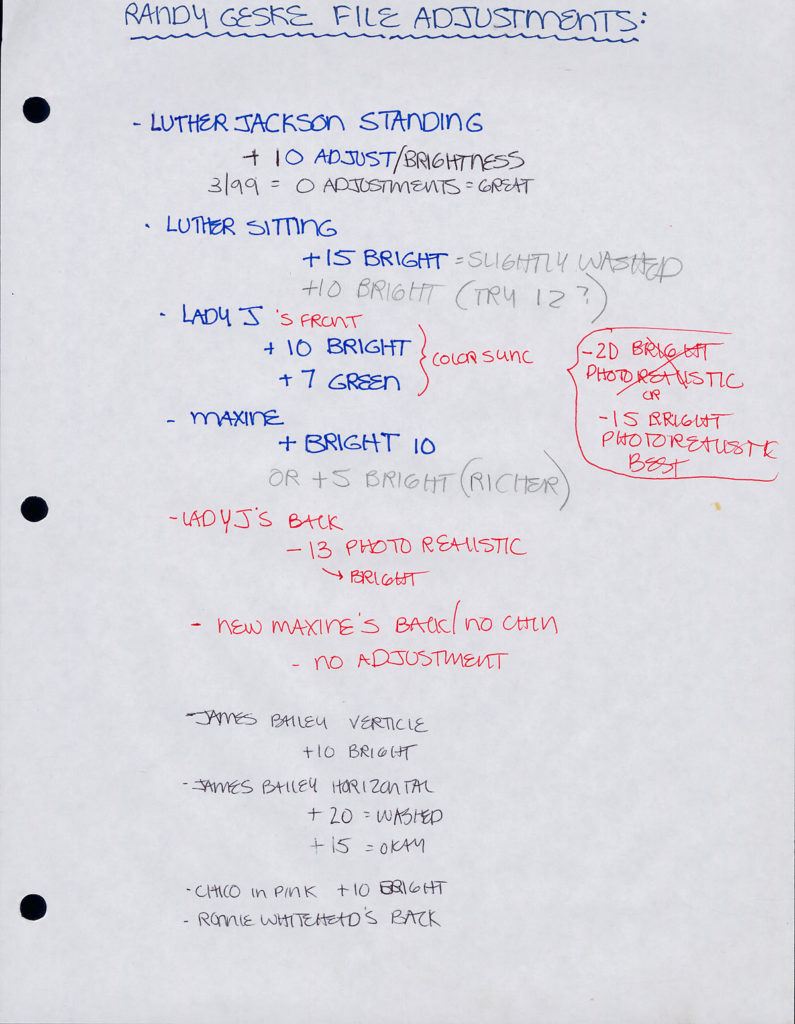 RANDY GESKE FILE ADJUSTMENTS:
- LUTHER JACKSON STANDING
+ 10 ADJUST/BRIGHTNESS
3/99 = 0 ADJUSTMENTS = GREAT
- LUTHER SITTING
+15 BRIGHT = SLIGHTLY WASHED
+10 BRIGHT (TRY 12?)
- LADY J 'S FRONT
+ 10 BRIGHT
+ 7 GREEN
COLOR SYNC
-20 BRIGHT
PHOTO REALISTIC
OR
-15 BRIGHT
PHOTOREALISTIC
BEST
- MAXINE
+ BRIGHT 10
OR +5 BRIGHT (RICHER)
- LADY J'S BACK
- 13 PHOTO REALISTIC
→ BRIGHT
- NEW MAXINE'S BACK/NO CHIN
- NO ADJUSTMENT
- JAMES BAILEY VERTICLE
+10 BRIGHT
- JAMES BAILEY HORIZONTAL
+ 20 = WASHED
+ 15 = OKAY
- CHICO IN PINK +10 BRIGHT
- RONNIE WHITEHEAD'S BACK